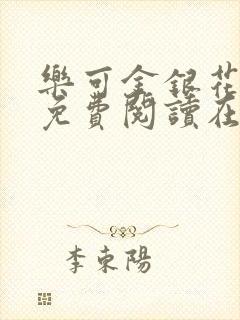 樂可金銀花
免費閱讀在
李東陽